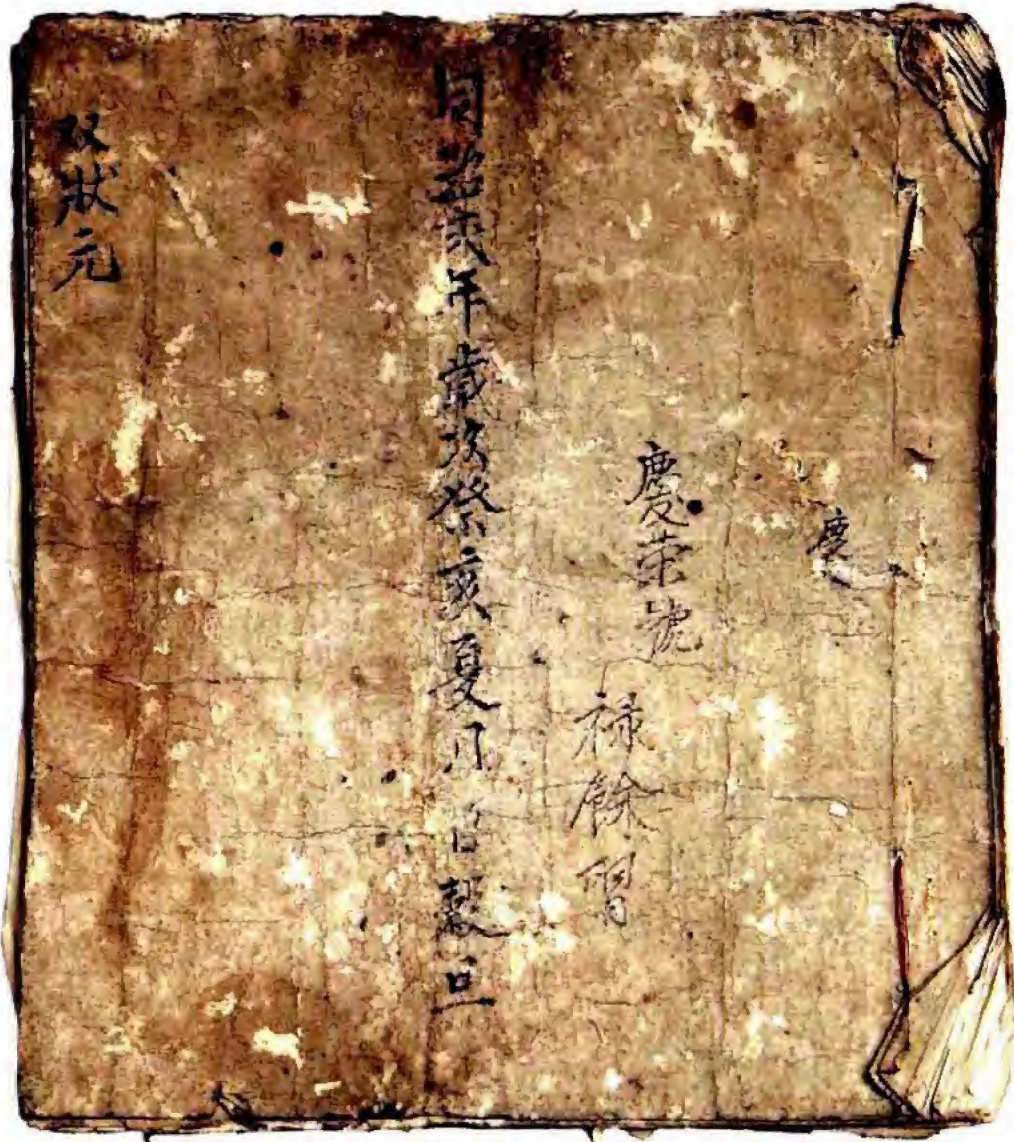 慶
慶荣號
禄餘
同治貳年歲次癸亥夏月穀旦
双狀元